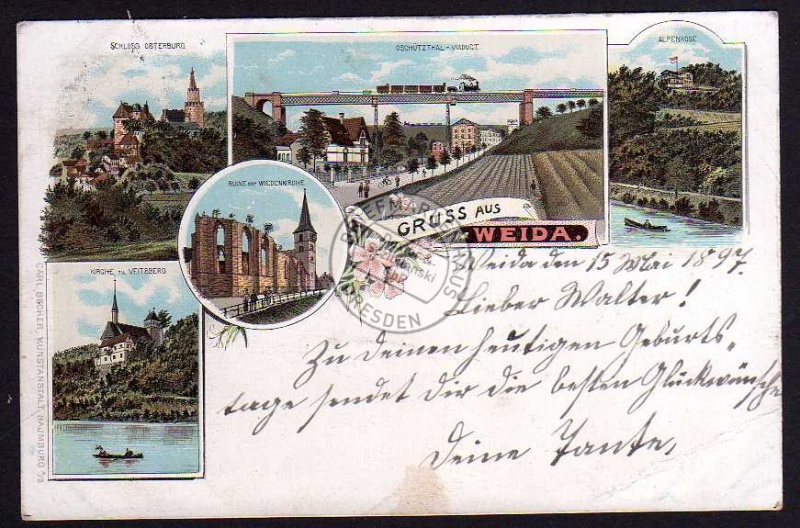 SCHLOSS OSTERBURG
OSCHÜTZTHAL-VIADUCT
ALPENROSE
RUINE DER WIEDENKIRCHE
GRUSS AUS
WEIDA.
KIRCHE ZU VEITSBERG
CARL BECKER, KUNSTANSTALT, NAUMBURG a/S
BRIEFMARKENHAUS
DRESDEN
Weida den 15 Mai 1897.
Lieber Walter!
Zu deinen heutigen Geburts-
tage sendet dir die besten Glückwünsche
Deine Tante,